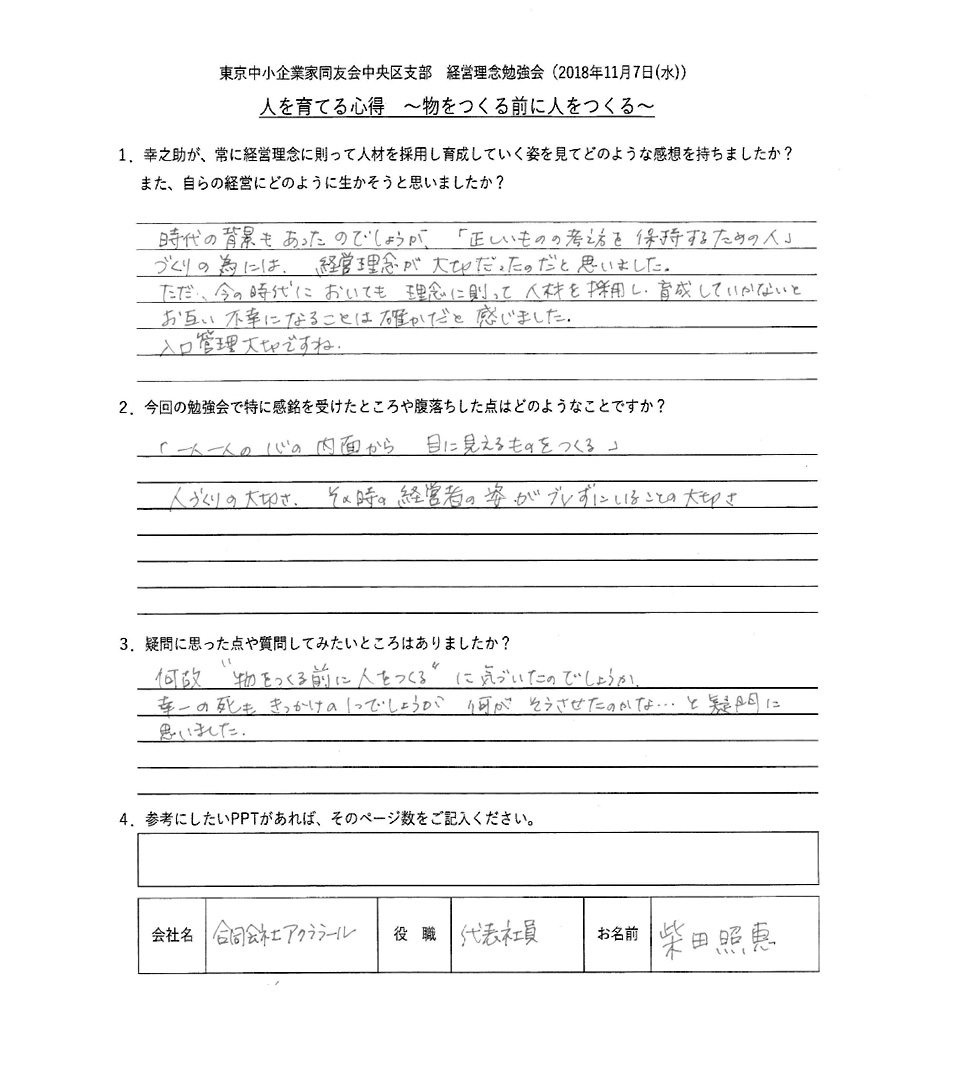 東京中小企業家同友会中央区支部　経営理念勉強会（2018年11月7日(水)）
人を育てる心得　～物をつくる前に人をつくる～
1．幸之助が、常に経営理念に則って人材を採用し育成していく姿を見てどのような感想を持ちましたか？
また、自らの経営にどのように生かそうと思いましたか？
時代の背景もあったのでしょうが、「正しいものの考え方を保持するための人」
づくりの為には、経営理念が大切だったのだと思いました。
ただ、今の時代においても理念に則って人材を採用し、育成していかないと
お互い不幸になることは確かだと感じました。
入口管理大切ですね。
2．今回の勉強会で特に感銘を受けたところや腹落ちした点はどのようなことですか？
「一人一人の心の内面から　目に見えるものをつくる」
人づくりの大切さ、その時の経営者の姿がブレずにいることの大切さ
3．疑問に思った点や質問してみたいところはありましたか？
何故“物をつくる前に人をつくる”に気づいたのでしょうか。
幸一の死もきっかけの1つでしょうが　何がそうさせたのかな…と疑問に
思いました。
4．参考にしたいPPTがあれば、そのページ数をご記入ください。
会社名　合同会社アクラール　役　職　代表社員　お名前　柴田照恵